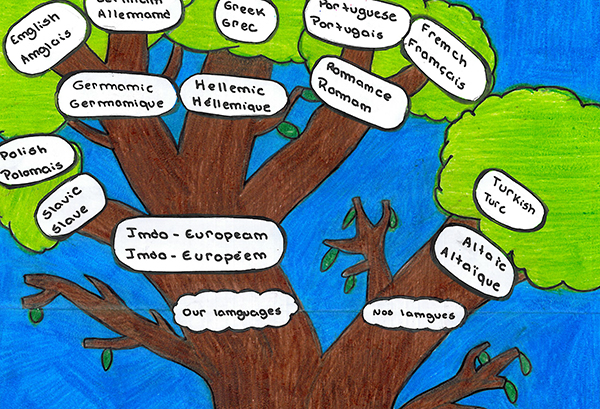 English
Anglais
Allemand
Greek
Grec
Portuguese
Portugais
French
Français
Germanic
Germanique
Hellenic
Hellénique
Romance
Roman
Polish
Polonais
Slavic
Slave
Turkish
Turc
Indo - European
Indo - Européen
Altaic
Altaïque
Our languages
Nos langues